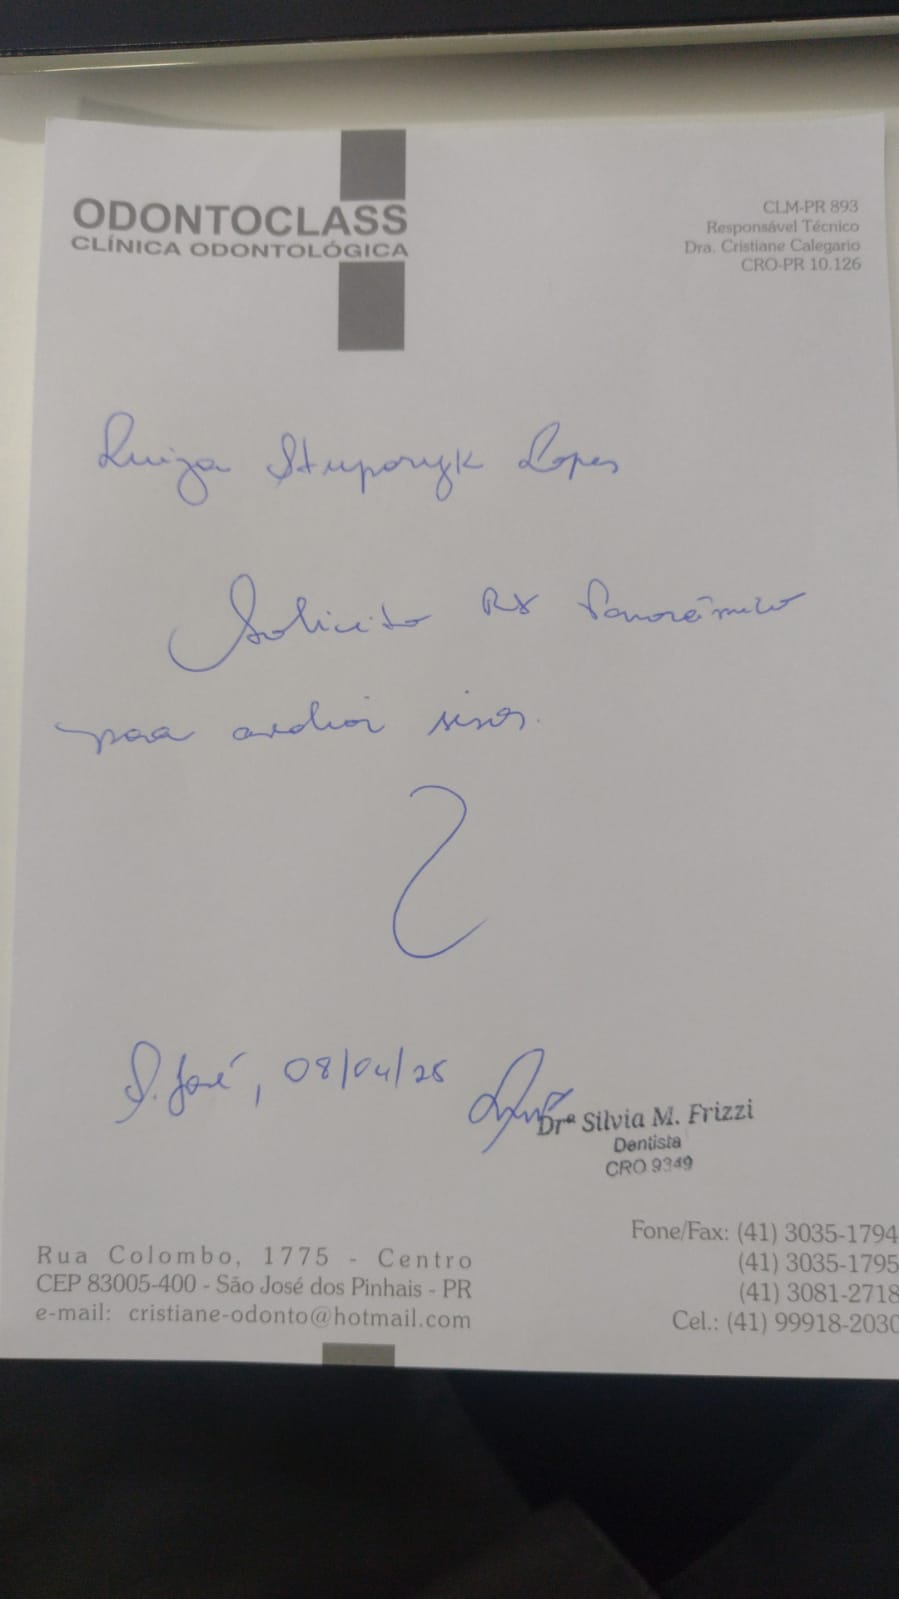 ODONTOCLASS
CLÍNICA ODONTOLÓGICA
CLM-PR 893
Responsável Técnico
Dra. Cristiane Calegario
CRO-PR 10.126
Luiza Stuporyk Lopes
Solicito RX Panorâmico
para avaliar sisos.
S. José, 08/04/25
Drª Silvia M. Frizzi
Dentista
CRO 9349
Rua Colombo, 1775 - Centro
CEP 83005-400 - São José dos Pinhais - PR
e-mail: cristiane-odonto@hotmail.com
Fone/Fax: (41) 3035-1794
(41) 3035-1795
(41) 3081-2718
Cel.: (41) 99918-2030